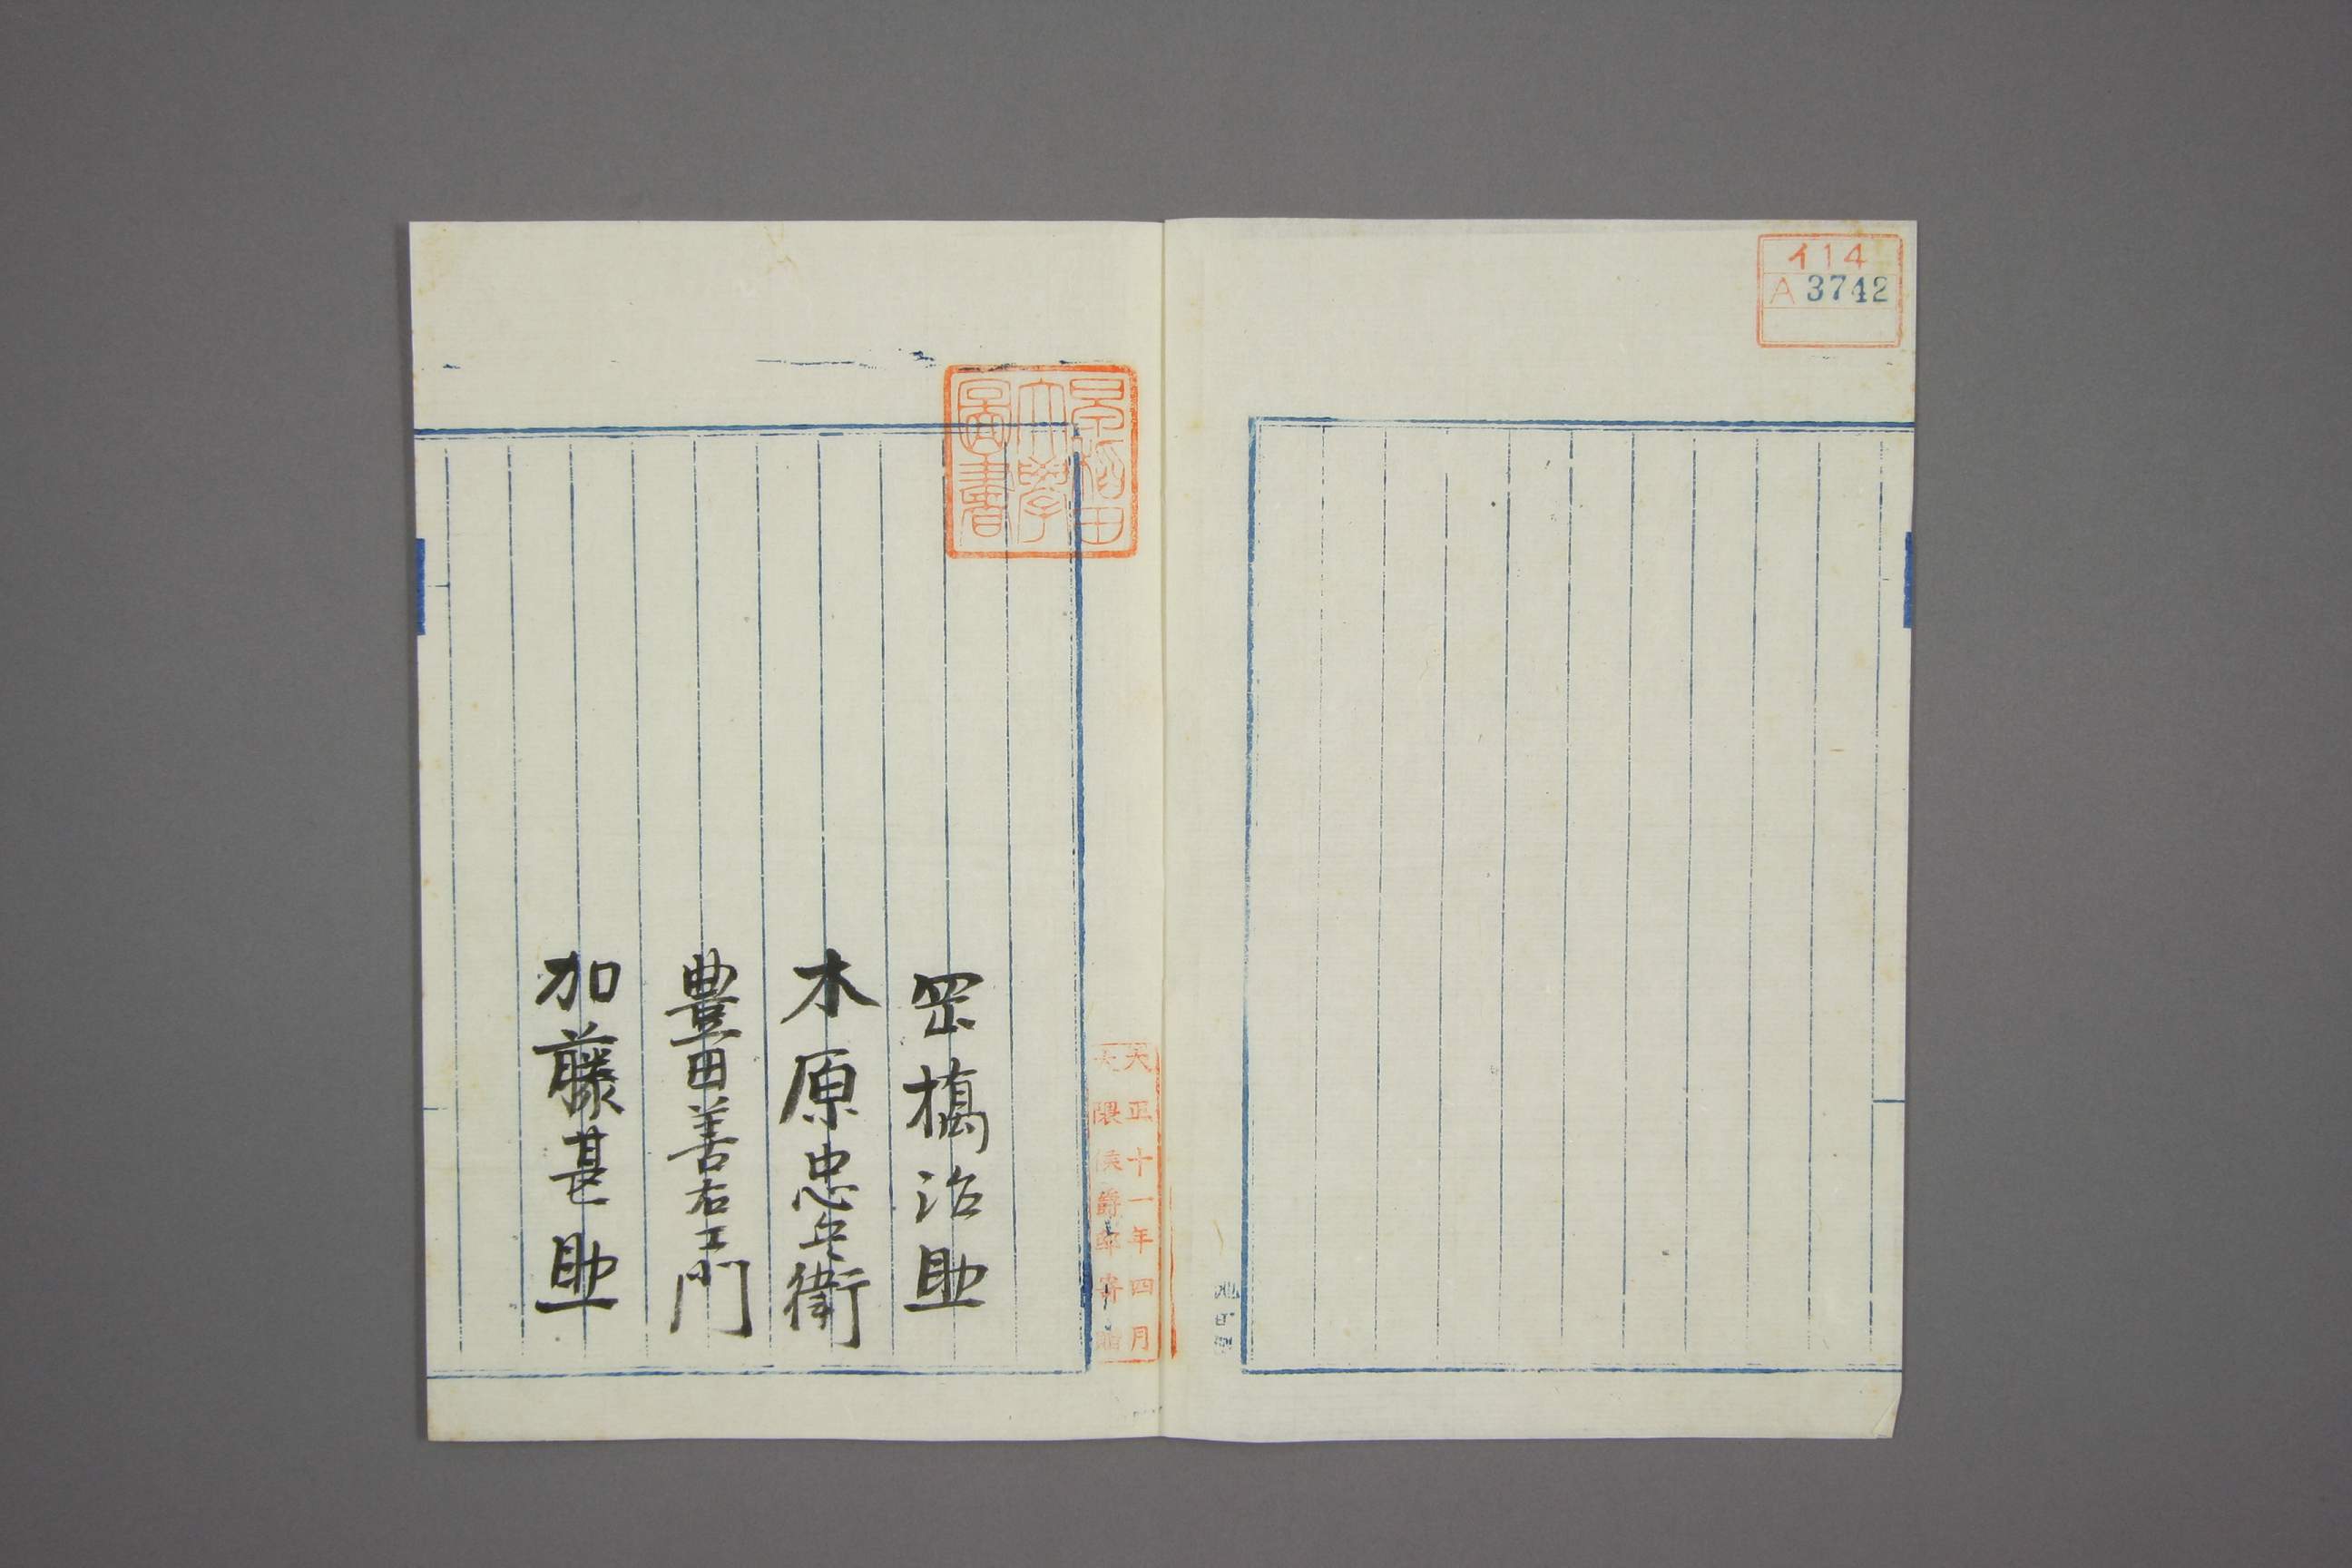 イ14
A 3742
大正十一年四月
大隈侯爵邸寄贈
早稲田
大學
圖書
罡橋治助
木原忠兵衛
豊田善右エ門
加藤甚助